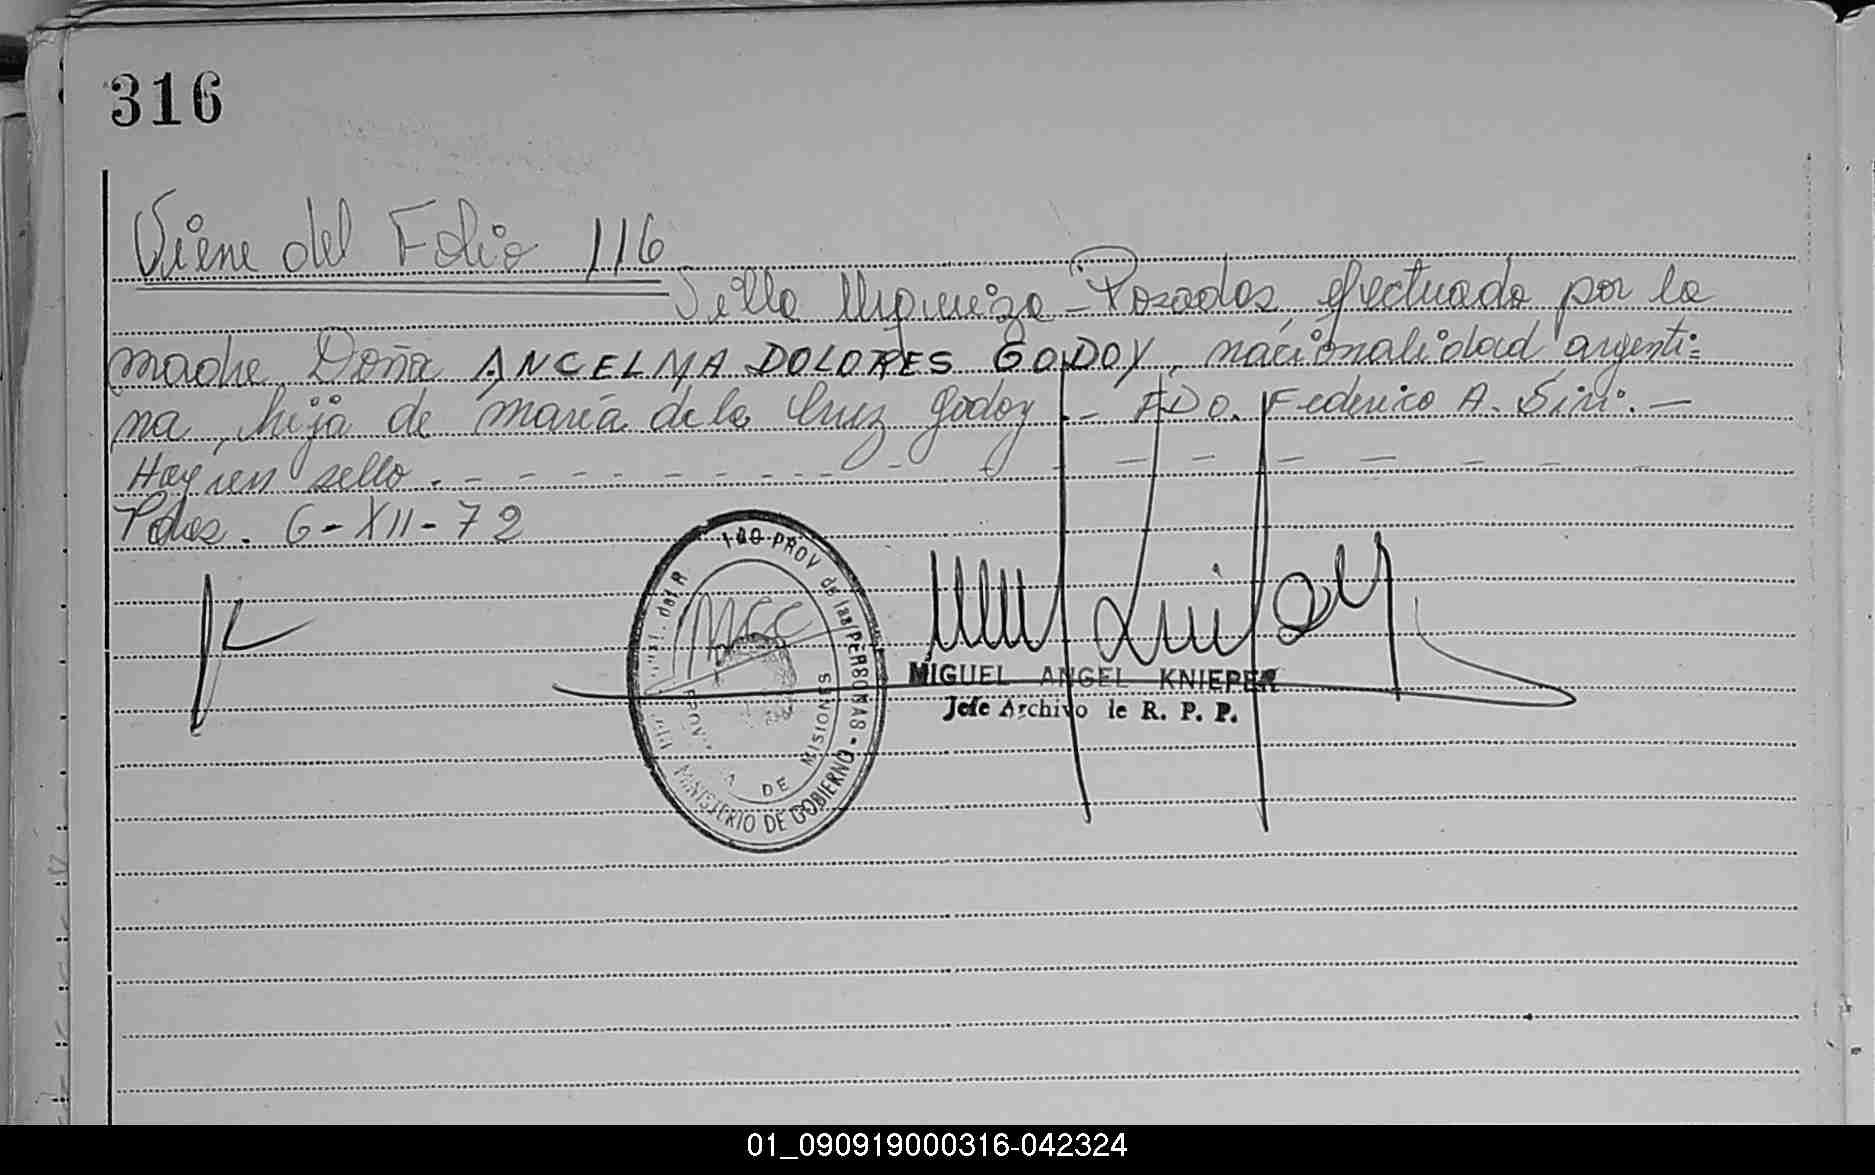 316
Viene del Folio 116
Villa Urquiza - Posadas efectuado por la
madre Doña ANCELMA DOLORES GODOY, nacionalidad argenti=
na, hija de maría de la Cruz godoy. - FDO. Federico A. Sini. -
Hay un sello. - - - - - - - - - - - - - - - -
Pdas. 6-XII-72
PROV de las PERSONAS - MINISTERIO DE GOBIERNO
DE MISIONES
MIGUEL ANGEL KNIEPER
Jefe Archivo de R. P. P.
01_090919000316-042324